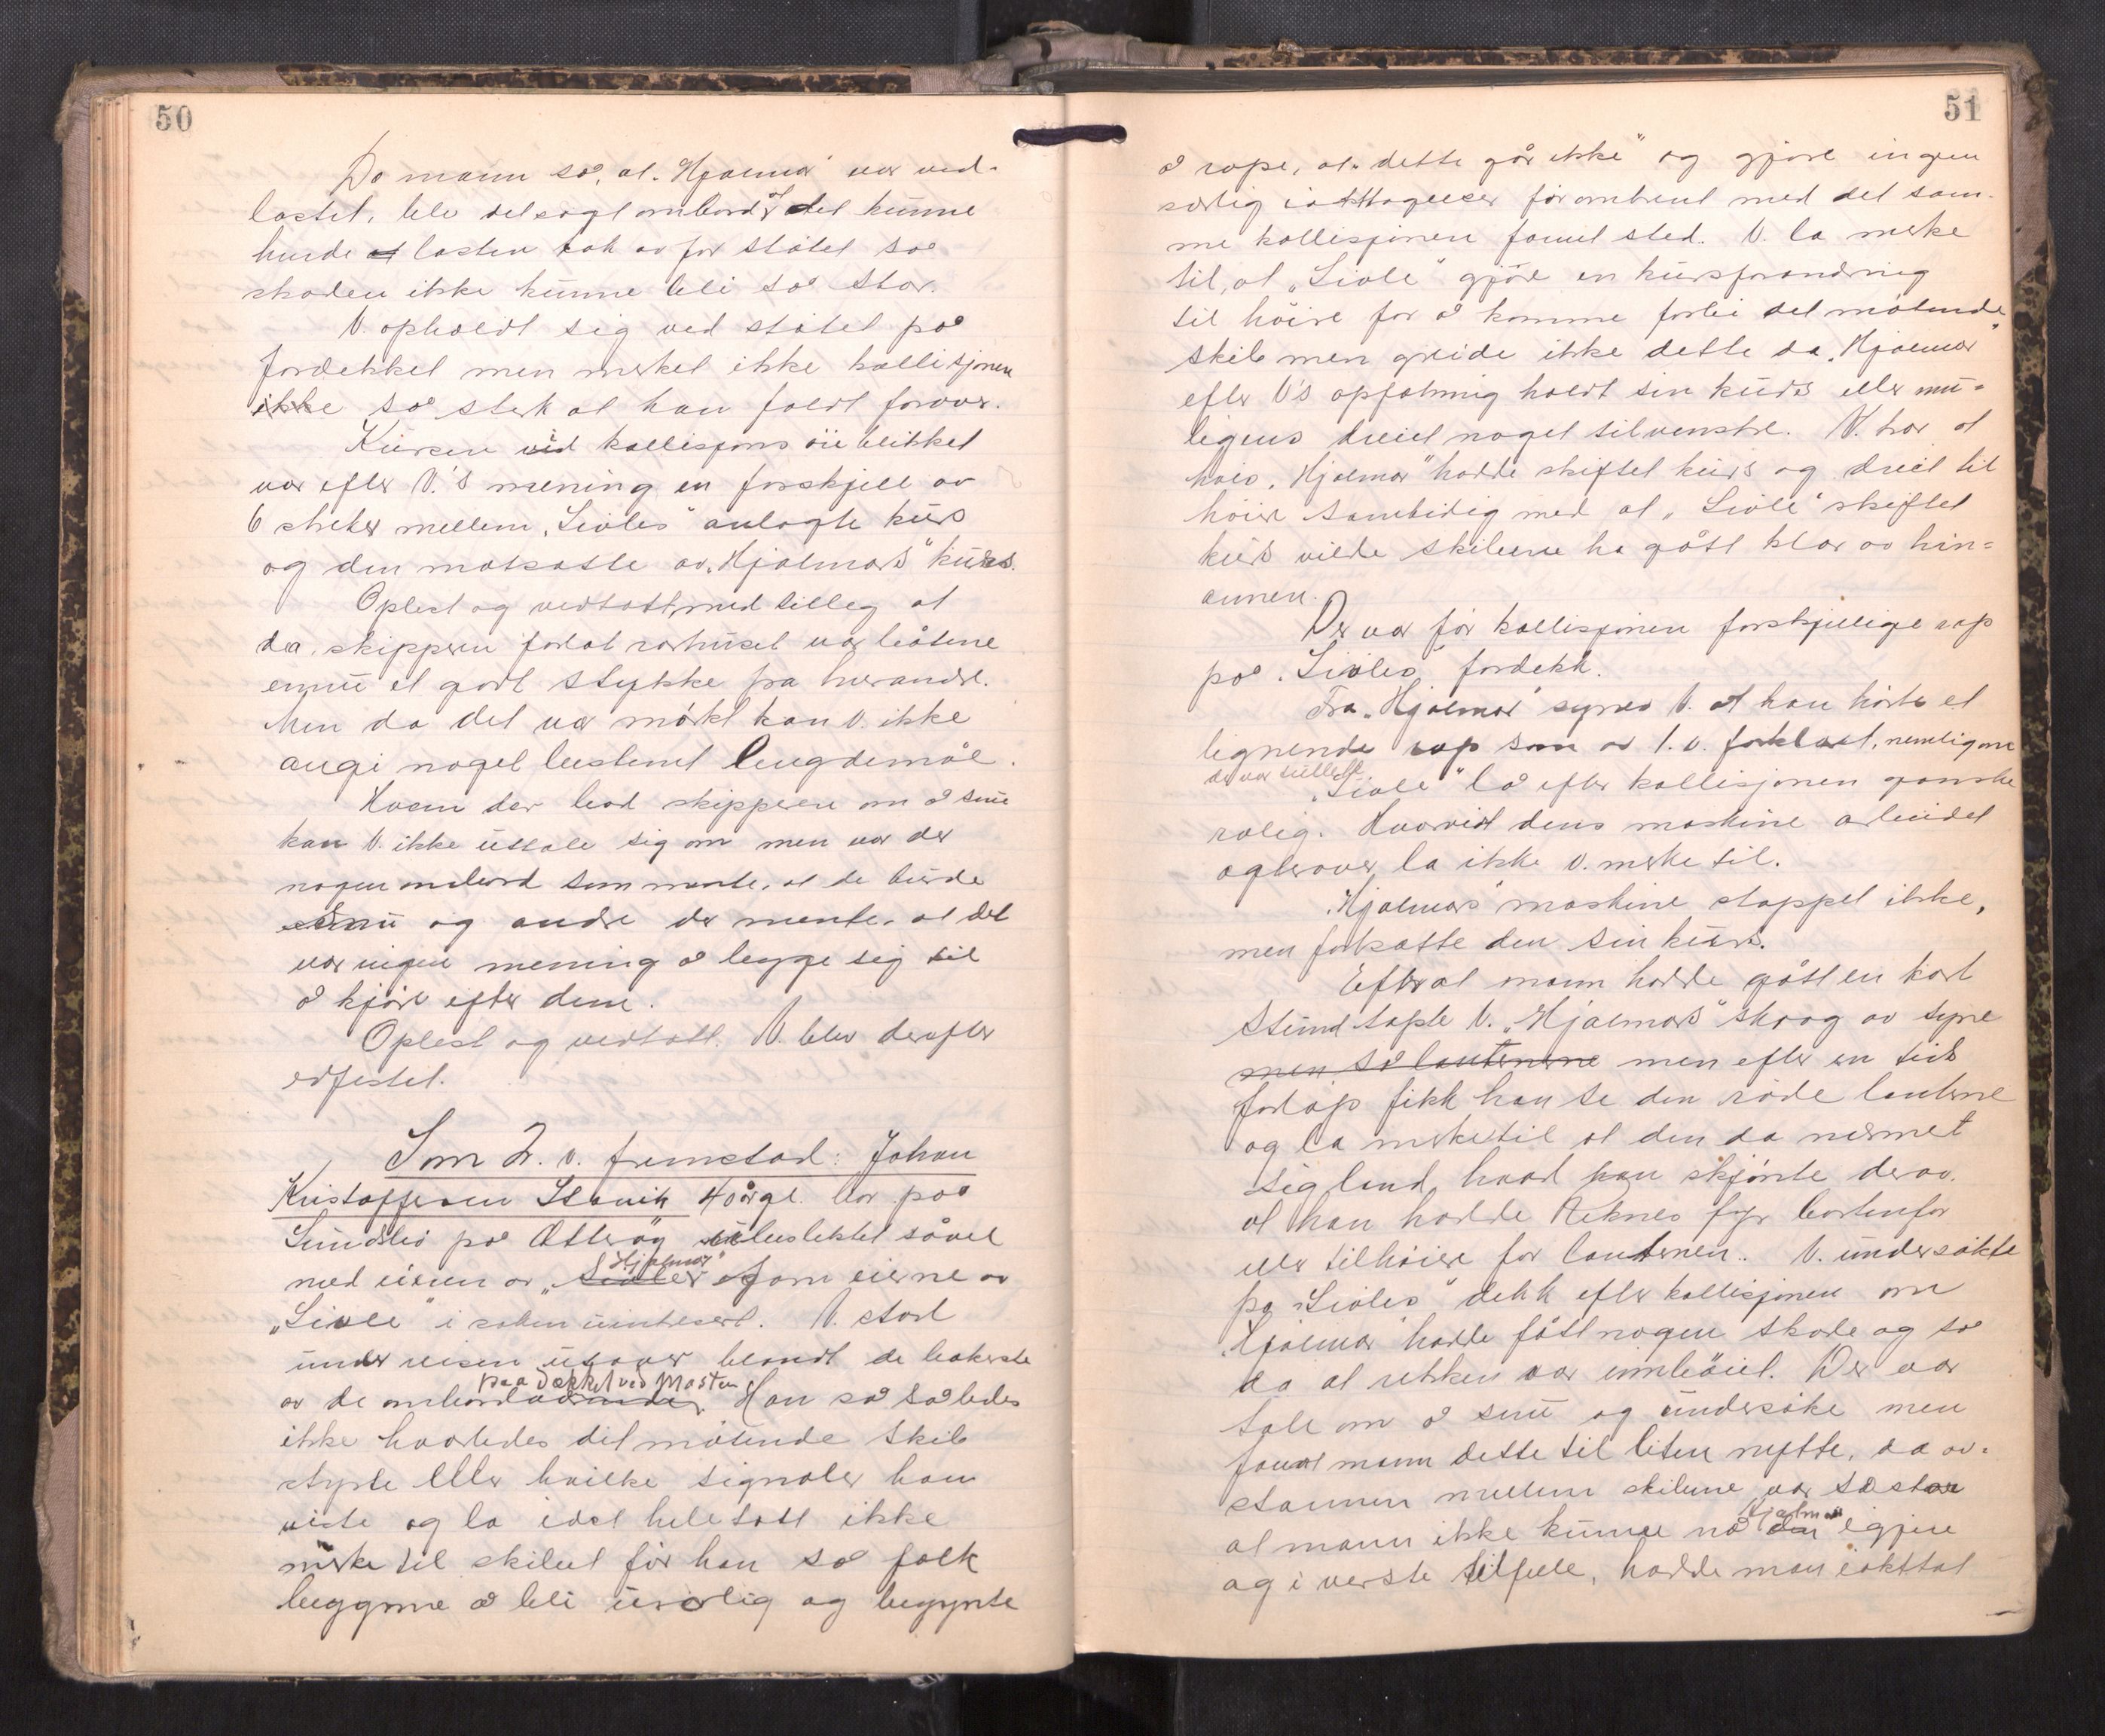 50
Da mann så, at „Hjalmar" var ved-
lastet, blev det sagt ombord at det kunne
hende at lasten tok av for støtet så
skaden ikke kunne bli så stor.
V. opholdt sig ved støtet på
fordekket men merket ikke kollisjonen
ikke så sterk at han faldt forover.
Kursen ved kollisjons øieblikket
var efter V.'s mening en forskjell av
6 streker mellem „Livles" anlagte kurs
og den motsatte av „Hjalmars" kurs.
Oplest og vedtatt, med tilleg at
da skipperen forlot rorhuset var båtene
ennu et godt stykke fra hverandre.
Men da det var mørkt kan V. ikke
angi noget bestemt lengdemål.
Hvem der bad skipperen om å snu
kan V. ikke uttale sig om men var der
nogen ombord som mente, at de burde
snu og andre der mente, at det
var ingen mening å legge sig til
å kjøre efter dem.
Oplest og vedtatt. V. blev derefter
edfestet.
Som 2. v. fremstod: Johan
Kristoffersen 40 år gl. bor på
Sundsbø på Otterøy ubeslektet såvel
med eieren av „Hjalmar" som eierne av
„Livle" i saken uinteresert. V. stod
under reisen utover blandt de bakerste
av de ombordværende paa dækket ved masten. Han så således
ikke hvorledes det møtende skib
styrte eller hvilke signaler han
viste og la i det hele tatt ikke
merke til skibet før han så folk
begynne å bli urolig og begynte
51
å rope, at „dette går ikke" og gjore ingen
særlig iakttagelser før omtrent med det sam-
me kollisjonen fannt sted. V. la merke
til, at „Livle" gjøre en kursforandring
til høire for å komme forbi det møtende
skib men greide ikke dette da „Hjalmar"
efter V's opfatning holdt sin kurs eller mu-
ligens dreiet noget til venstre. V. tror at
hvis „Hjalmar" hadde skiftet kurs og dreiet til
høire samtidig med at „Livle" skiftet
kurs vilde skibene ha gått klar av hin-
annen.
Der var før kollisjonen forskjellige rop
på „Livles" fordekk.
Fra „Hjalmar" synes V. at han hørte et
lignende rop som av 1. v. forklart, nemlig om
de var tullete
„Livle" lå efter kollisjonen ganske
rolig. Hvorvidt dens maskine arbeidet
agterover, la ikke V. merke til.
„Hjalmars" maskine stoppet ikke,
men fortsatte den sin kurs.
Efter at mann hadde gått en kort
stund tapte V. „Hjalmars" skrog av syne
men så lanternene men efter en tids
forløp fikk han se den røde lanterne
og la merke til at den da nærmet
sig land, hvad han skjønte derav.
at han hadde Reknes fyr bortenfor
eller til høire for lanternen. V. undersøkte
på „Livles" dekk efter kollisjonen om
„Hjalmar" hadde fått nogen skade og så
da at rekken var innbøiet. Der var
tale om å snu og undersøke men
fannt mann dette til liten nytte, da av-
standen mellem skibene var så stor
at mann ikke kunne nå den Hjalmar igjen
og i verste tilfelle, hadde man iakttat